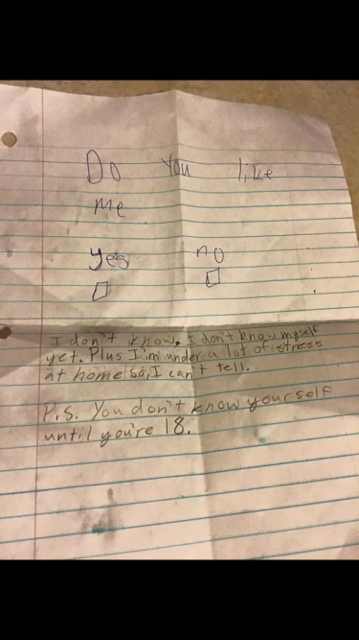 Do you like
me
yes no
I don't know. I don't know myself
yet. Plus I'm under a lot of stress
at home so, I can't tell.
P.s. You don't know yourself
until you're 18.